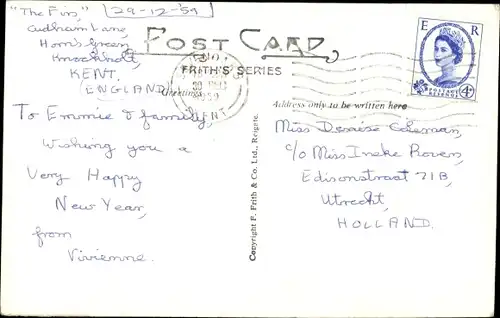 "The Firs", 29-12-59
Cudham Lane,
Horn's Green,
Knockholt,
KENT.
(ENGLAND)
POST CARD
FRITH'S SERIES
Greetings
To Emmie & family,
Wishing you a
Very Happy
New Year,
from
Vivienne.
Copyright F. Frith & Co. Ltd., Reigate.
E R
POSTAGE
REVENUE
4D
Address only to be written here
Miss Denise Coleman,
c/o Miss Ineke Rovers,
Edisonstraat 71B,
Utrecht,
HOLLAND.